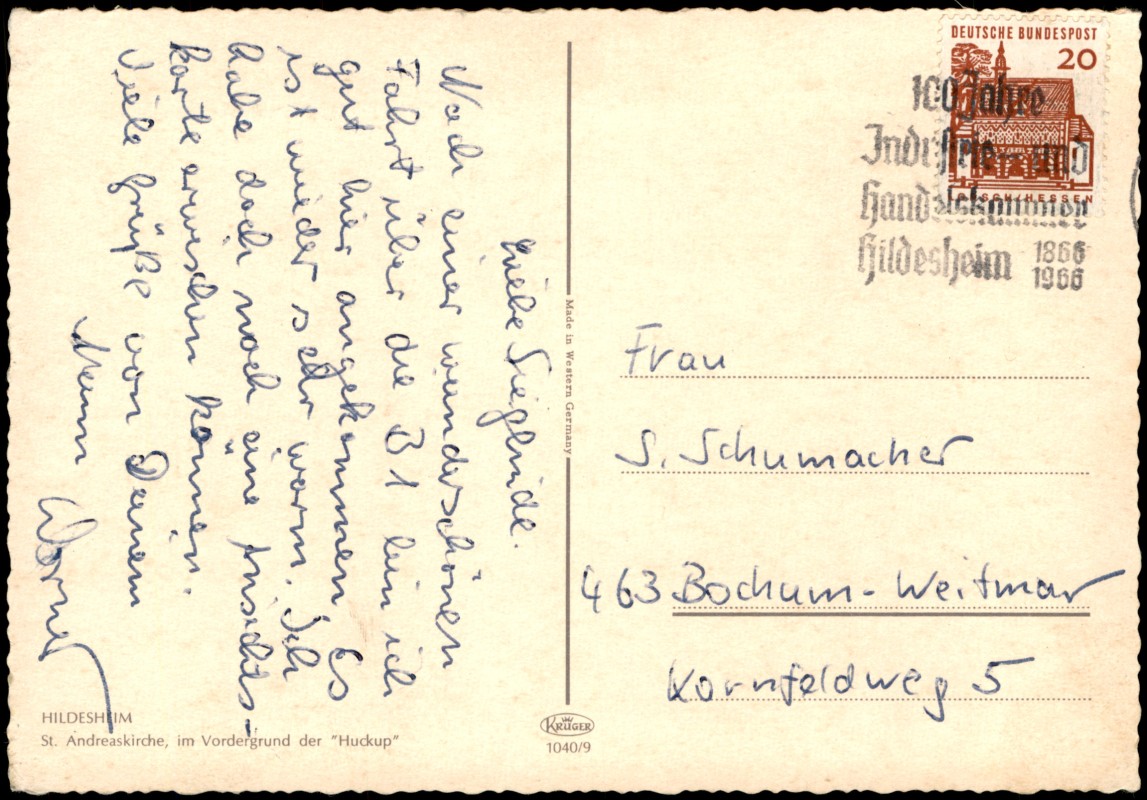 Liebe Sieglinde.
Nach einer wunderschönen
Fahrt über die B1 bin ich
gut hier angekommen Es
ist wieder sehr warm. Ich
habe doch noch eine Ansichts-
karte erwischen können.
Viele Grüße von Deinem
Mann
Werner
HILDESHEIM
St. Andreaskirche, im Vordergrund der "Huckup"
Made in Western Germany
KRÜGER
1040/9
DEUTSCHE BUNDESPOST
20
LORSCH/HESSEN
100 Jahre
Industrie- und
Handelskammer
Hildesheim 1866
1966
Frau
S. Schumacher
463 Bochum-Weitmar
Kornfeldweg 5